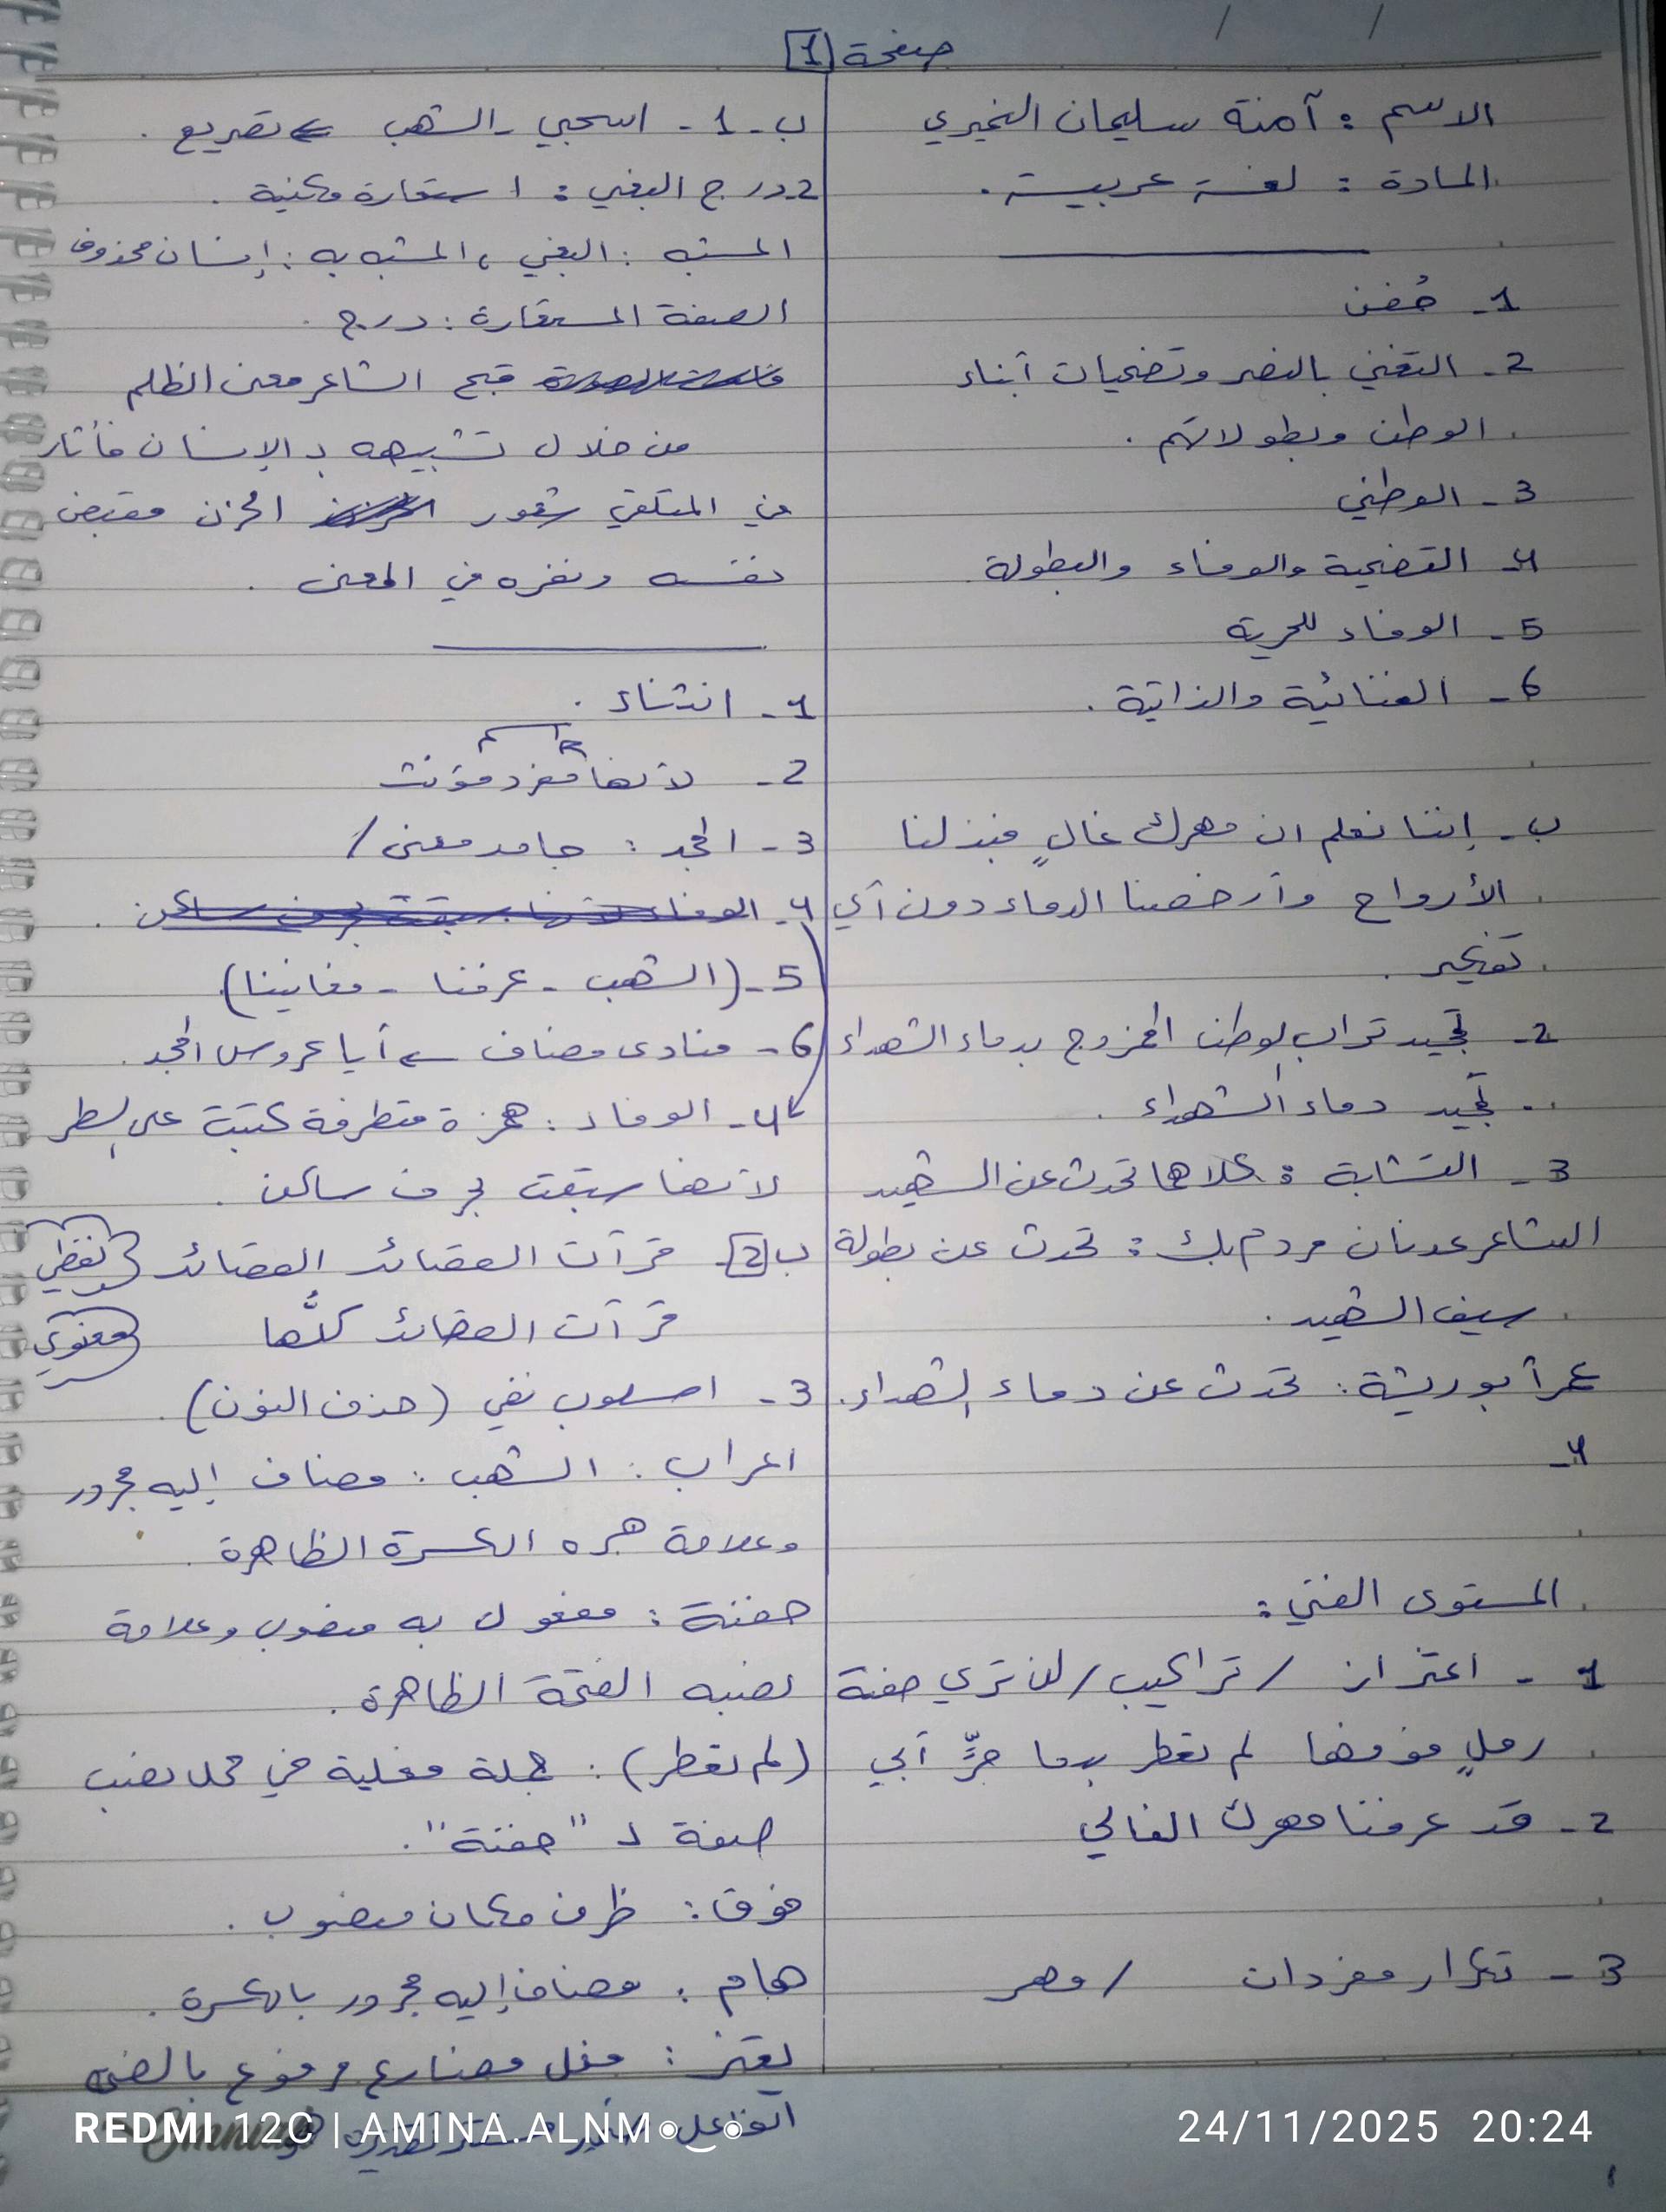 صفحة [1]
الاسم : آمنة سليمان النميري
المادة : لغة عربية .
1- حُفن
2- التغني بالنصر وتضحيات أبناء
الوطن وبطولاتهم .
3- الوطني
4- التضحية والوفاء والبطولة
5- الوفاء للحرية
6- الغنائية والذاتية .
ب- إننا نعلم ان مهرك غالٍ فبذلنا
الأرواح وأرخصنا الدماء دون أي
تفكير .
2- تمجيد تراب الوطن الممزوج بدماء الشهداء
.. تمجيد دماء الشهداء .
3- التشابة : كلاهما تحدث عن الشهيد
الشاعر عدنان مردم بك : تحدث عن بطولة
سيف الشهيد .
عمر أبو ريشة : تحدث عن دماء الشهداء .
4-
المستوى الفني :
1 - اعتزاز / تراكيب / لن تري حفنة
رملٍ فوقها لم تعطر بدما حرٍّ أبي
2- قد عرفنا مهرك الغالي
3 - تكرار مفردات / مهر
ب-1- اسحبي - الشهب ← تصريع .
2- درج البغي : استعارة مكنية .
المشبه : البغي ، المشبه به : إنسان محذوف
الصفة المستعارة : درج .
قبح الشاعر معنى الظلم
من خلال تشبيهه بـ الإنسان فأثار
في المتلقي شعور الحزن فقبض
نفسه ونفره في المعنى .
1- انشاء .
2- لأنها اسم مفرد مؤنث
3- المجد : جامد معنى /
5- (الشهب - عرفنا - مغانينا)
6- منادى مضاف ← أيا عروس المجد .
4- الوفاء : همزة متطرفة كتبت على السطر
لأنها سبقت بحرف ساكن .
ب [2]- قرأت القصائد القصائد لفظي
قرأت القصائد كلَّها معنوي
3- اسلوب نفي (حذف النون) .
اعراب : الشهب : مضاف إليه مجرور
وعلامة جره الكسرة الظاهرة .
حفنة : مفعول به منصوب وعلامة
نصبه الفتحة الظاهرة .
(لم تعطر) : جملة فعلية في محل نصب
صفة لـ "حفنة" .
فوق : ظرف مكان منصوب .
هام : مضاف إليه مجرور بالكسرة .
: فعل مضارع مرفوع بالضمة
الفاعل ضمير مستتر تقديره
REDMI 12C | AMINA.ALNM◉‿◉
24/11/2025 20:24